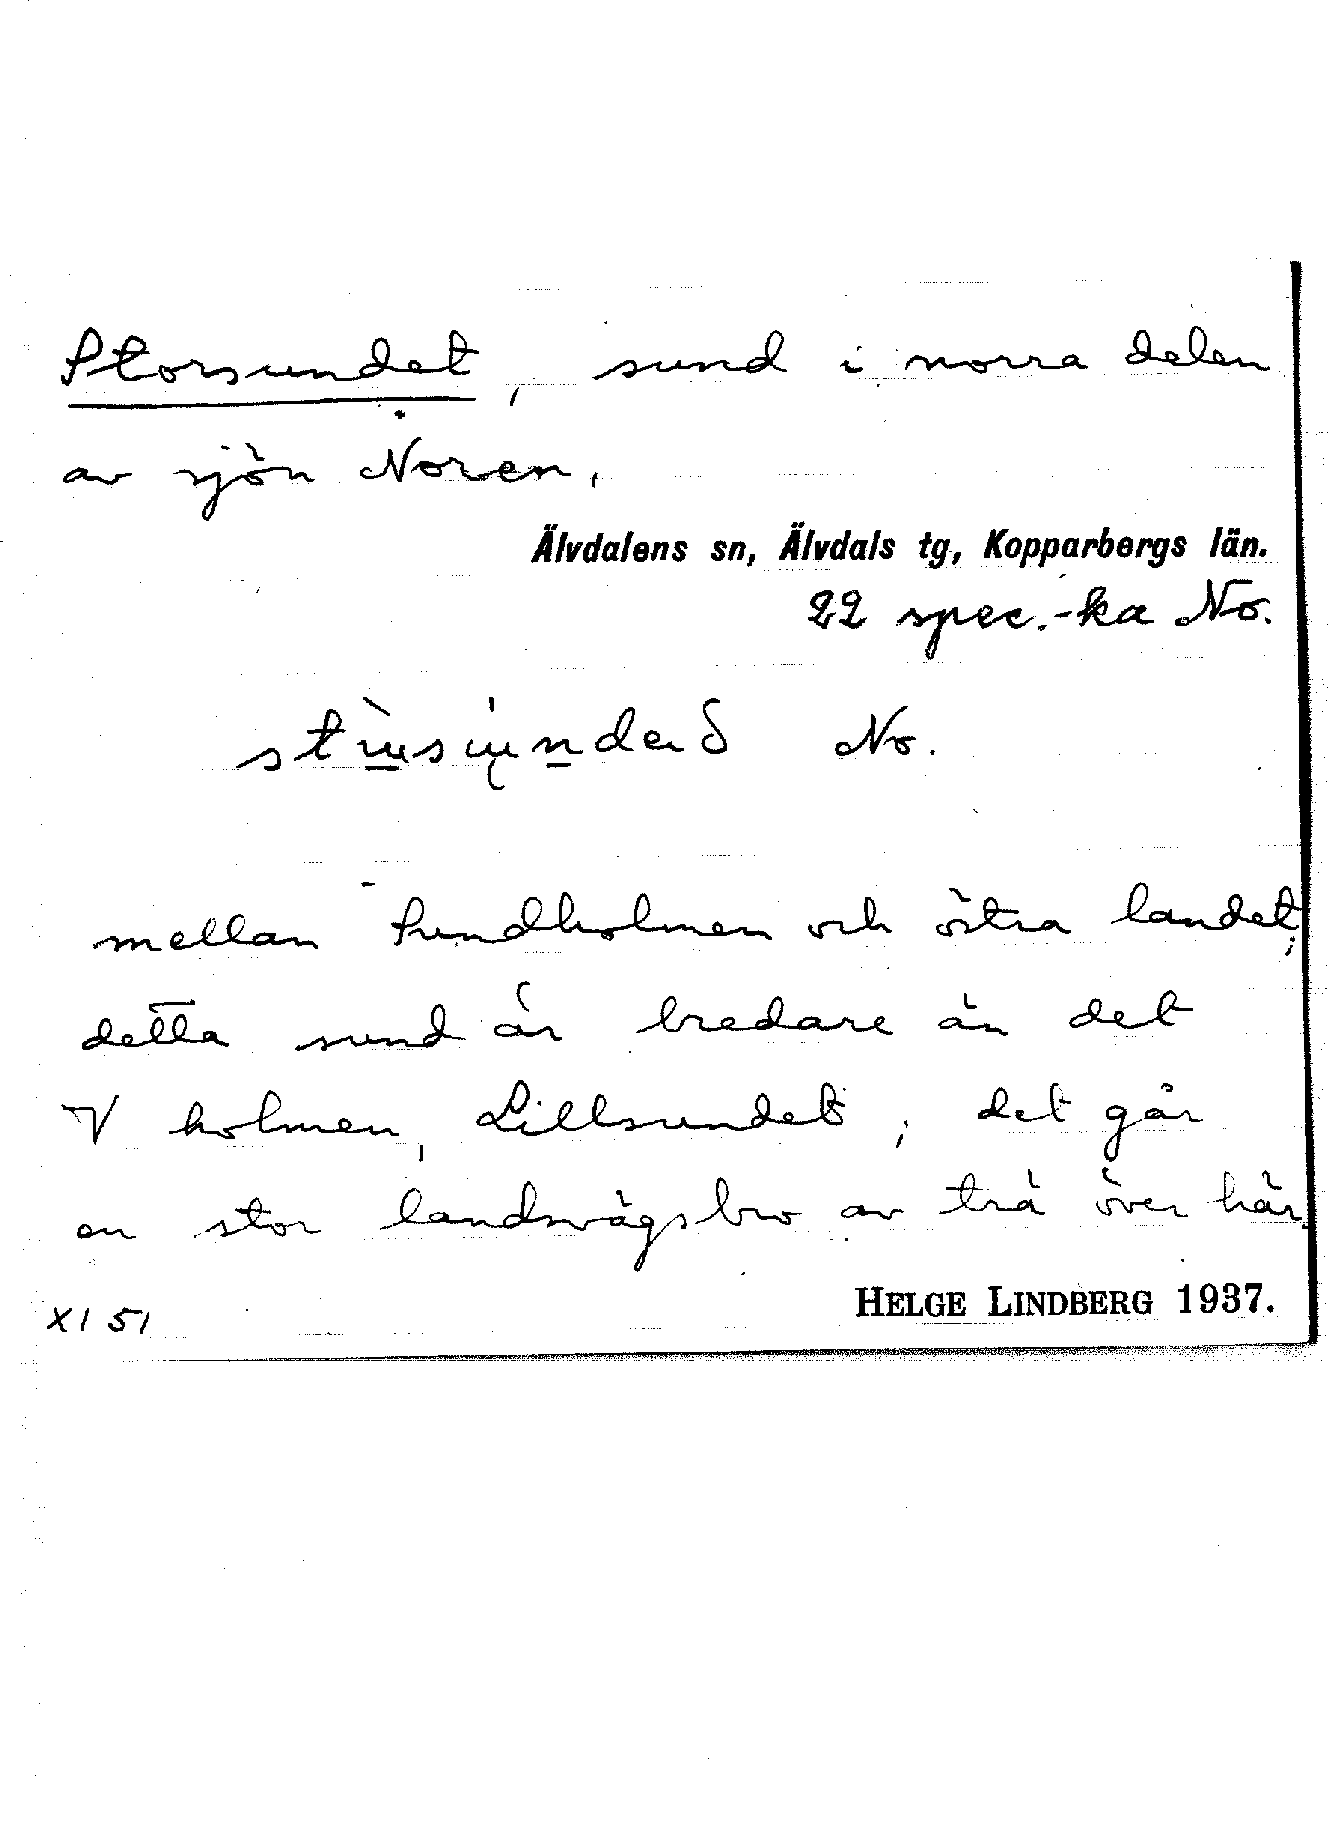 Storsundet, sund i norra delen
av sjön Noren.
Älvdalens sn, Älvdals tg, Kopparbergs län.
22 spec.-ka No.
No.
mellan Sundholmen och östra landet;
detta sund är bredare än det
V holmen, Lillsundet; det går
en stor landsvägsbro av trä över här.
HELGE LINDBERG 1937.
XI 51